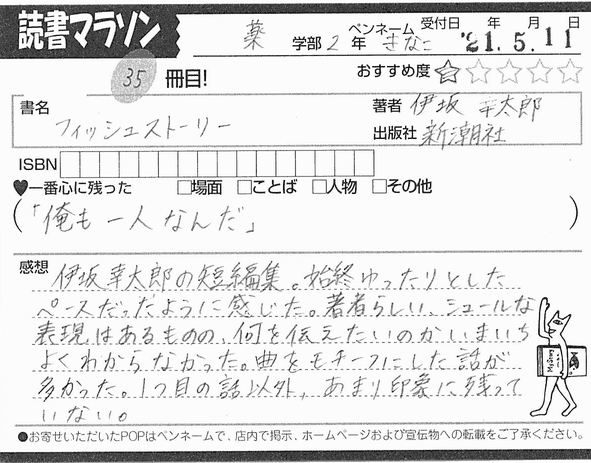 読書マラソン
薬 学部 2 年 ペンネーム きなこ 受付日 年 月 日 '21.5.11
35 冊目!
おすすめ度 ☆☆☆☆☆
書名 フィッシュストーリー
著者 伊坂 幸太郎
出版社 新潮社
ISBN
♥一番心に残った □場面 □ことば □人物 □その他
(「俺も一人なんだ」)
感想 伊坂幸太郎の短編集。始終ゆったりとした
ペースだっだように感じた。著者らしい、シュールな
表現はあるものの、何を伝えたいのかいまいち
よくわからなかった。曲をモチーフにした話が
多かった。1つ目の話以外、あまり印象に残って
いない。
●お寄せいただいたPOPはペンネームで、店内で掲示、ホームページおよび宣伝物への転載をご了承ください。